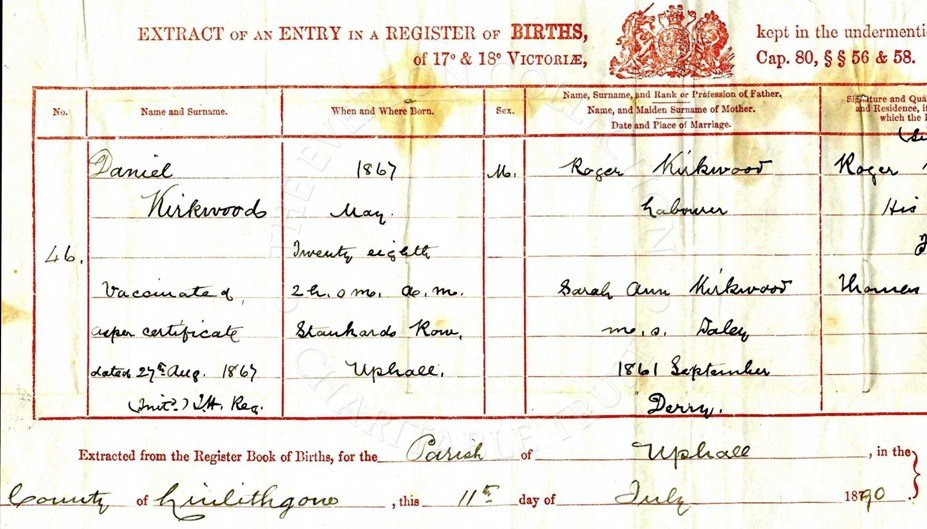 EXTRACT OF AN ENTRY IN A REGISTER OF BIRTHS, kept in the undermenti
of 17° & 18° VICTORIÆ, Cap. 80, §§ 56 & 58.
No.
Name and Surname.
When and Where Born.
Sex.
Name, Surname, and Rank or Profession of Father.
Name, and Maiden Surname of Mother.
Date and Place of Marriage.
Signature and Qua
and Residence, i
which the
46.
Daniel
Kirkwood
Vaccinated,
as per certificate
dated 27th Aug. 1867
(Init.) J.H. Reg.
1867
May.
Twenty eighth
2h. 0m. a.m.
Stankards Row.
Uphall.
M.
Roger Kirkwood
Labourer
Sarah Ann Kirkwood
m.s. Daley
1861 September
Derry.
Roger
His
Thomas
Extracted from the Register Book of Births, for the Parish of Uphall, in the
County of Linlithgow, this 11th day of July 1890